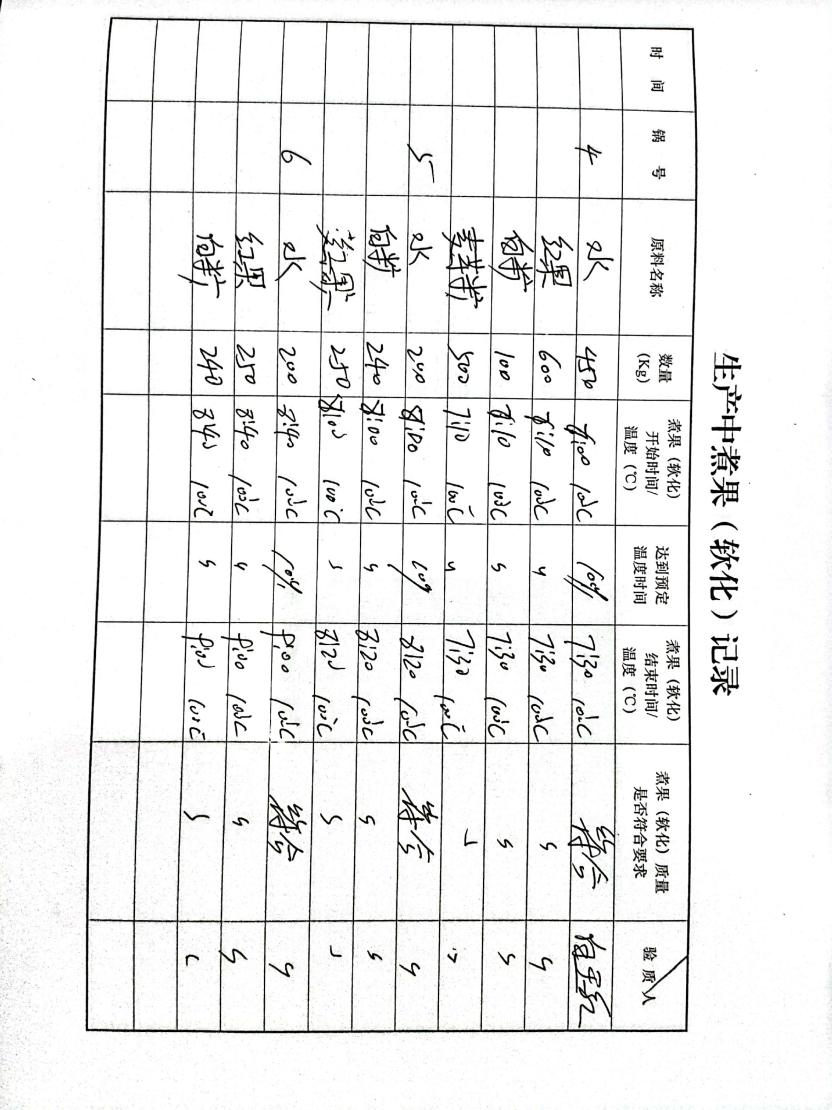 生产中煮果（软化）记录
时间 锅号 原料名称 数量(Kg) 煮果（软化）开始时间/温度（℃） 达到预定温度时间 煮果（软化）结束时间/温度（℃） 煮果（软化）质量是否符合要求 验质人
4 水 450 7:00 100℃ 10分 7:30 100℃ 符合
红果 600 7:10 100℃ 〃 7:30 100℃ 〃 〃
白糖 100 7:10 100℃ 〃 7:30 100℃ 〃 〃
麦芽糖 500 7:10 100℃ 〃 7:30 100℃ 〃 〃
5 水 200 8:00 100℃ 10分 8:20 100℃ 符合 〃
白糖 240 8:00 100℃ 〃 8:20 100℃ 〃 〃
红果 250 8:00 100℃ 〃 8:20 100℃ 〃 〃
6 水 200 8:40 100℃ 10分 9:00 100℃ 符合 〃
红果 250 8:40 100℃ 〃 9:00 100℃ 〃 〃
白糖 240 8:40 100℃ 〃 9:00 100℃ 〃 〃